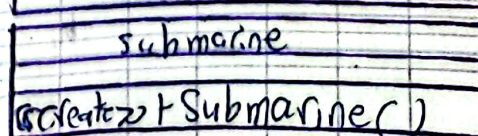 submarine
<<create>> + Submarine()